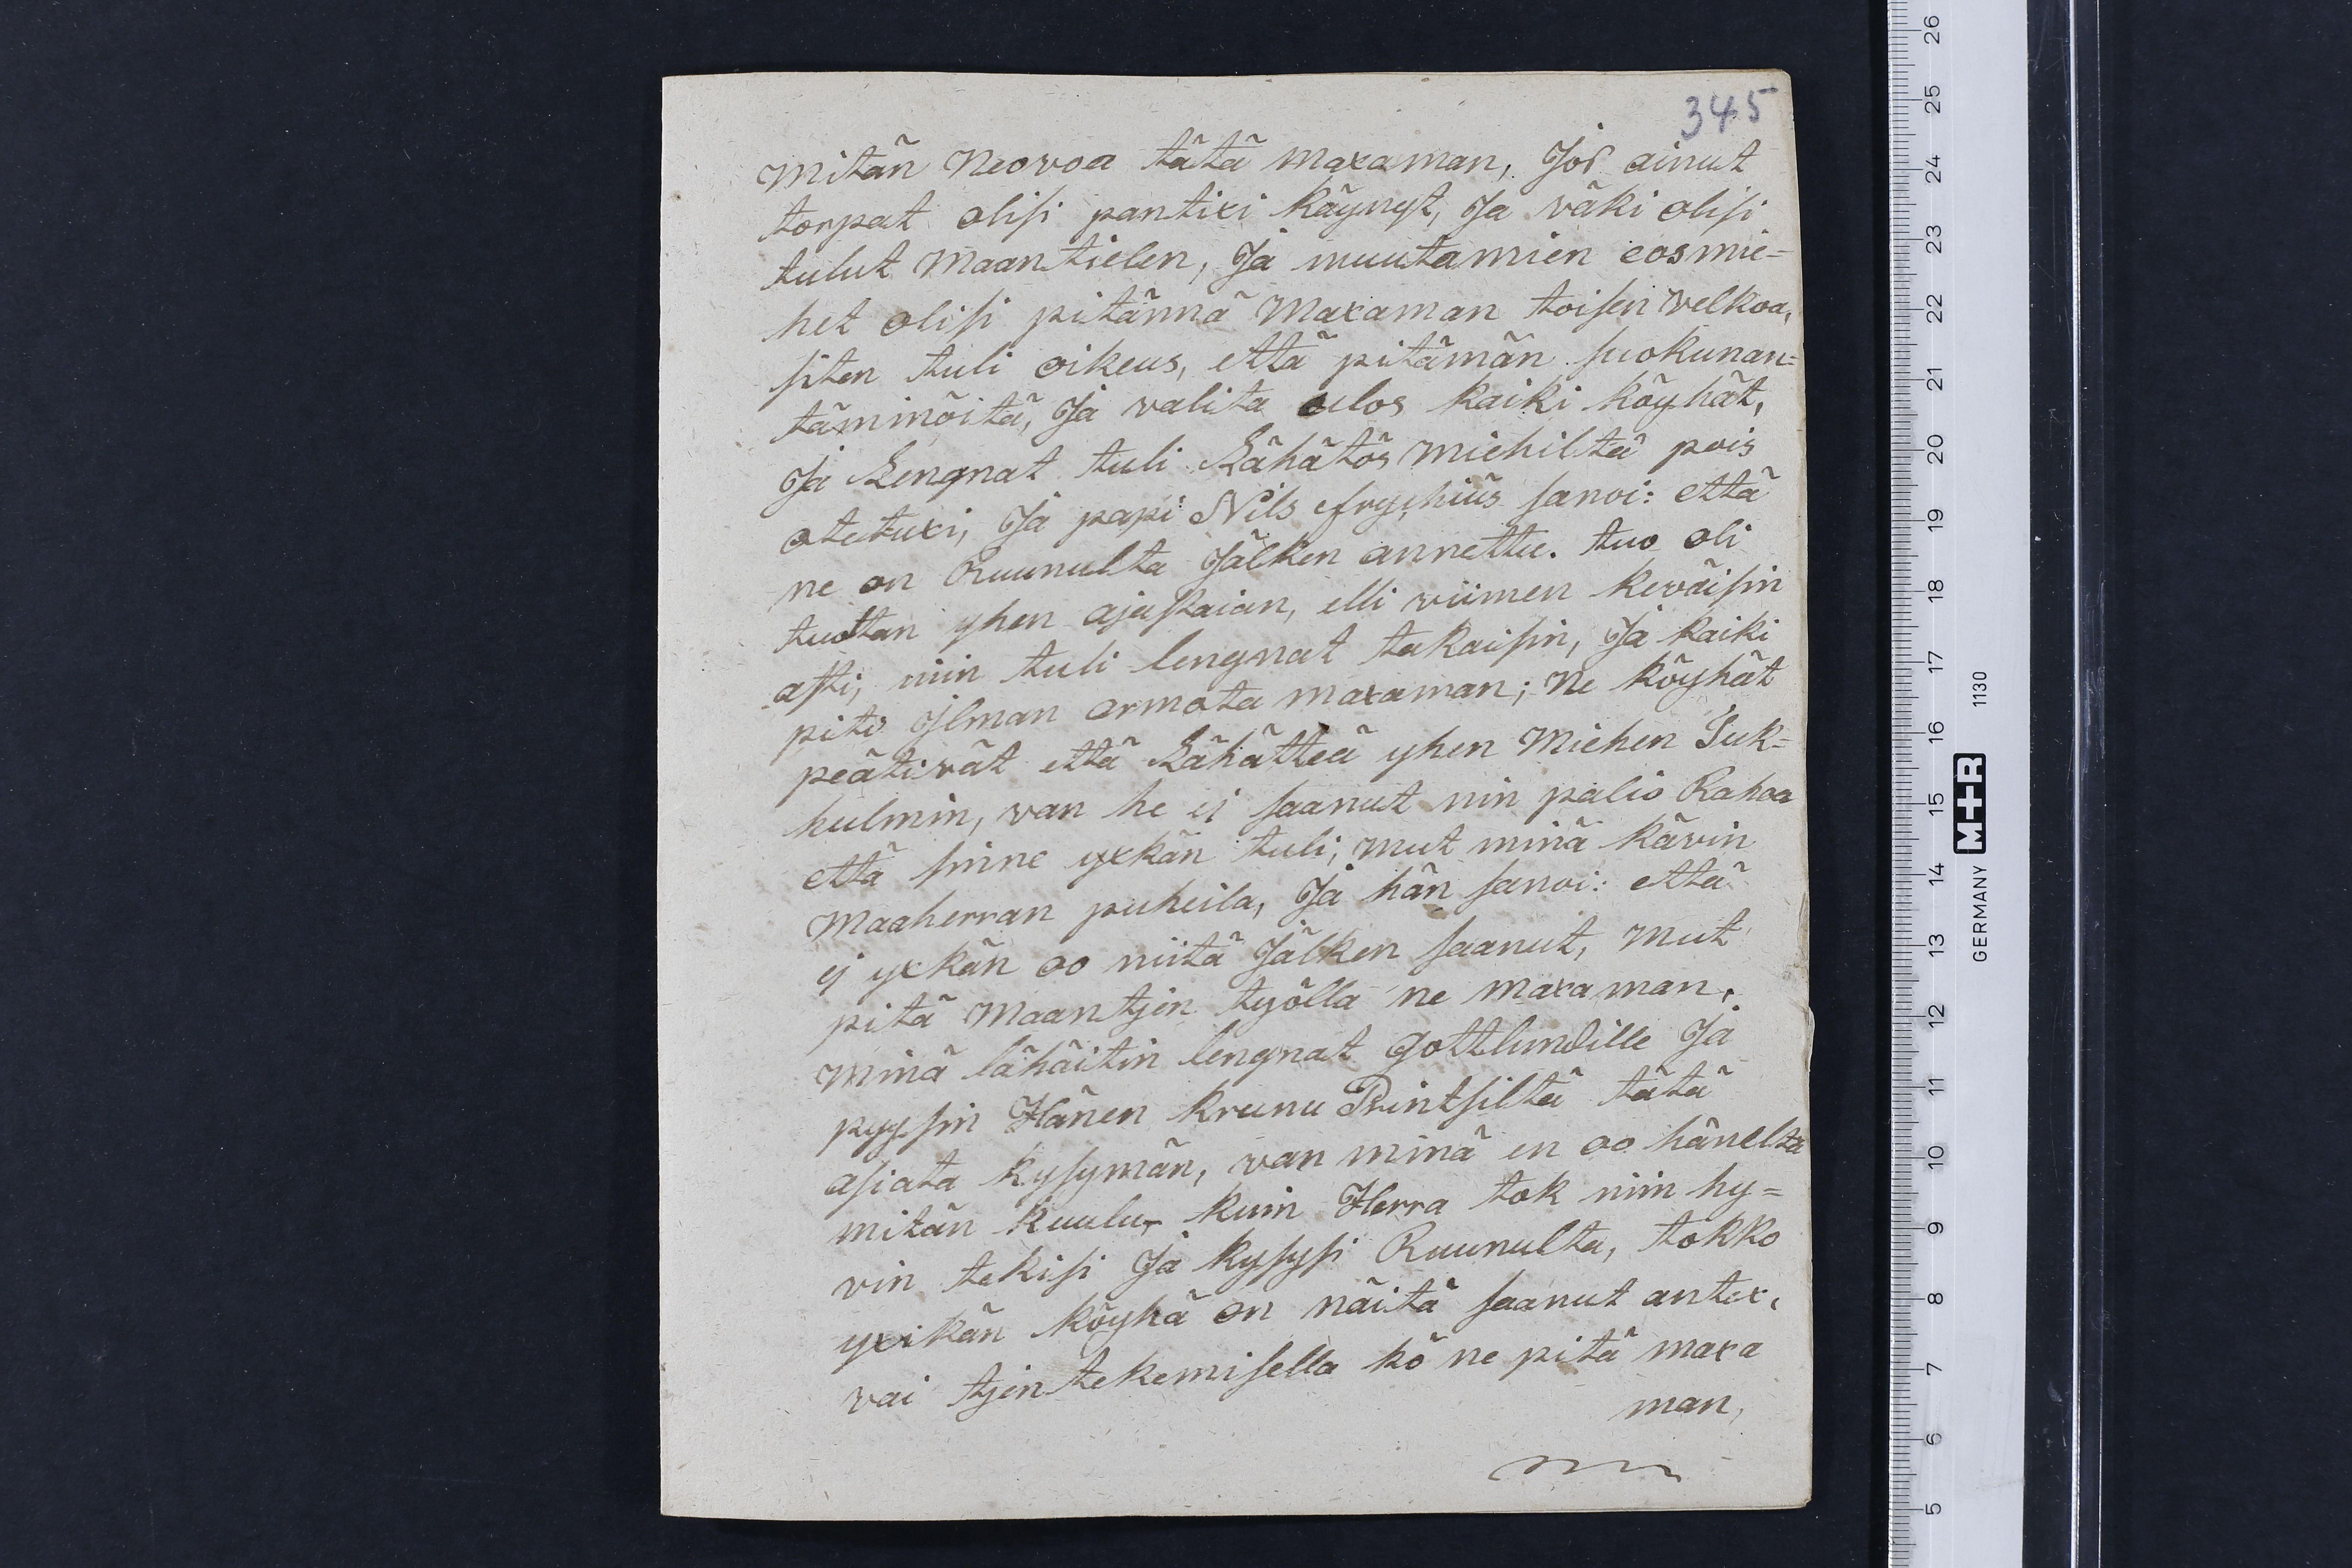 345
mitän Neovoa tätä maxaman, Jos ainut
torpat olisi pantixi käynyt, Ja väki olisi
tulut maantielen, Ja muutamien eosmie=
het olisi pitännä maxaman toisen velkoa,
siten tuli oikeus, että pitämän suokunan=
täminöitä, Ja valita ulos kaiki köyhät,
Ja Lengnat tuli Lähätös miehiltä pois
otetuxi, Ja papi Nils sanoi: että
ne on Ruunulta Jälken annettu. tuo oli
tuottan yhen ajastaian, elli viimen keväisin
asti, niin tuli lengnat takaisin, Ja kaiki
piti jlman armota maxaman; Ne köyhät
peätivät että Lähätteä yhen Miehen Tuk=
hulmin, van he ej saanut nin palio Rahoa
että sinne yxkän tuli, mut minä kävin
Maaherran puheila, Ja hän sanoi: että
ej yxkän oo niitä Jälken saanut, mut
pitä maantjen tyõllä ne maxaman.
minä lähäitin lengnat gottlundille Ja
pyysin Hänen kruunu Printsiltä tätä
asiata kysymän, van minä en oo häneltä
mitän kuulu, kuin Herra tok niin hy=
vin tekisi Ja kysysi Ruunulta, tokko
yxikän köyhä on näitä saanut antex,
vai tjen tekemisella kö ne pitä maxa
man,